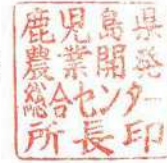 鹿児島県
農業開発
総合センタ
ー所長印